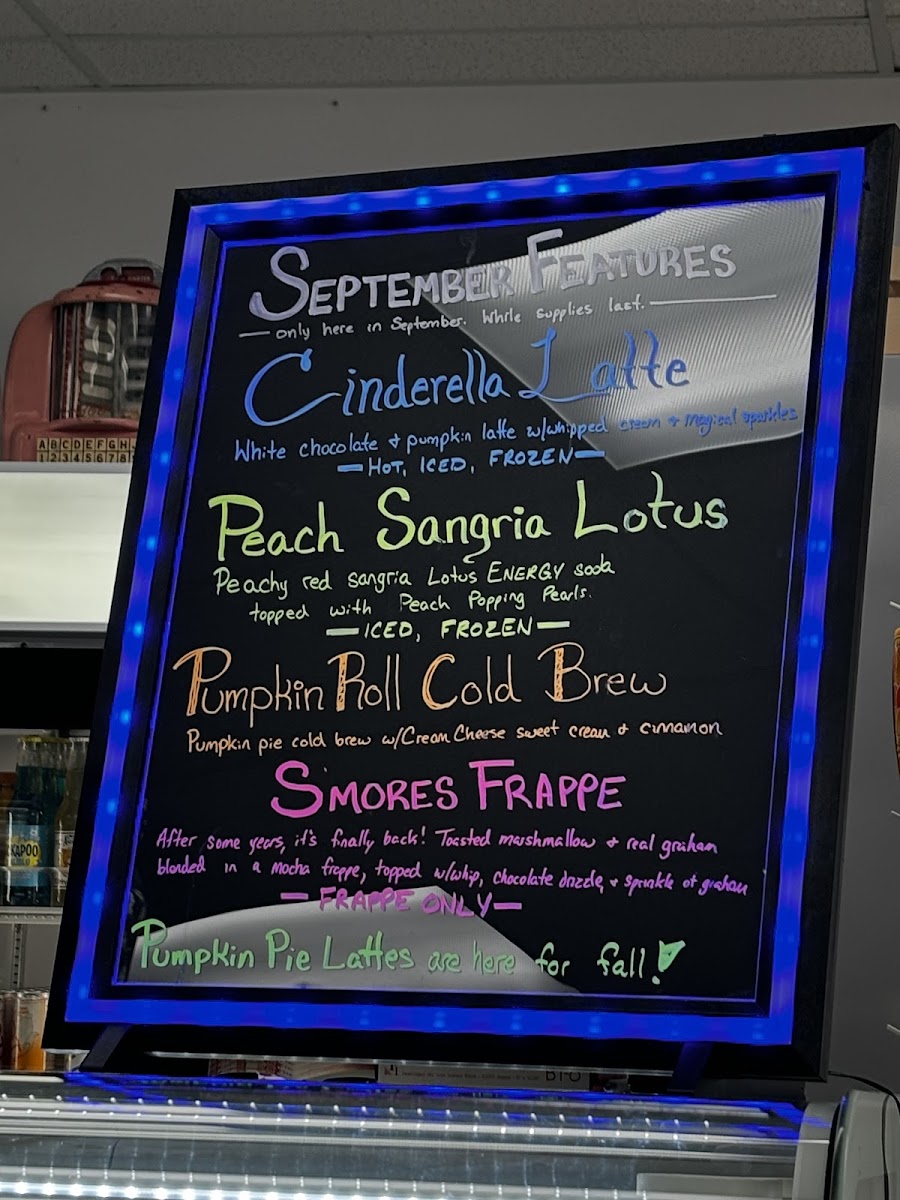 September Features
only here in September. While supplies last.
Cinderella Latte
White chocolate & pumpkin latte w/whipped cream & magical sparkles
HOT, ICED, FROZEN
Peach Sangria Lotus
Peachy red sangria Lotus ENERGY soda
topped with Peach Popping Pearls.
ICED, FROZEN
Pumpkin Roll Cold Brew
Pumpkin pie cold brew w/Cream Cheese sweet cream & cinnamon
S'MORES FRAPPE
After some years, it's finally back! Toasted marshmallow & real graham
blended in a mocha frappe, topped w/whip, chocolate drizzle, & sprinkle of graham
FRAPPE ONLY
Pumpkin Pie Lattes are here for fall!
ABCDEFGH
12345678
KAPOO